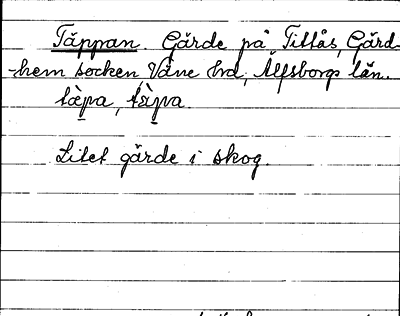 Täppan. Gärde på Tittås, Gärd-
hem socken, Väne hd, Älfsborgs län.
tàp̲a, tæ̀p̲a.
Litet gärde i skog.